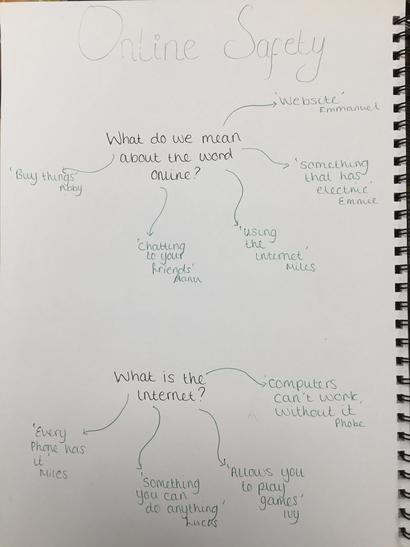 Online Safety
'Website'
Emmanuel
What do we mean
about the word
Online?
'Something
that has
electric'
'Buy things'
'Chatting
to your
friends'
'using
the
internet'
Miles
What is the
Internet?
'computers
can't work
without it
Phobe
'Every
Phone has
it'
Miles
'Something
you can
do anything'
Lucas
'Allows you
to play
games'
Ivy